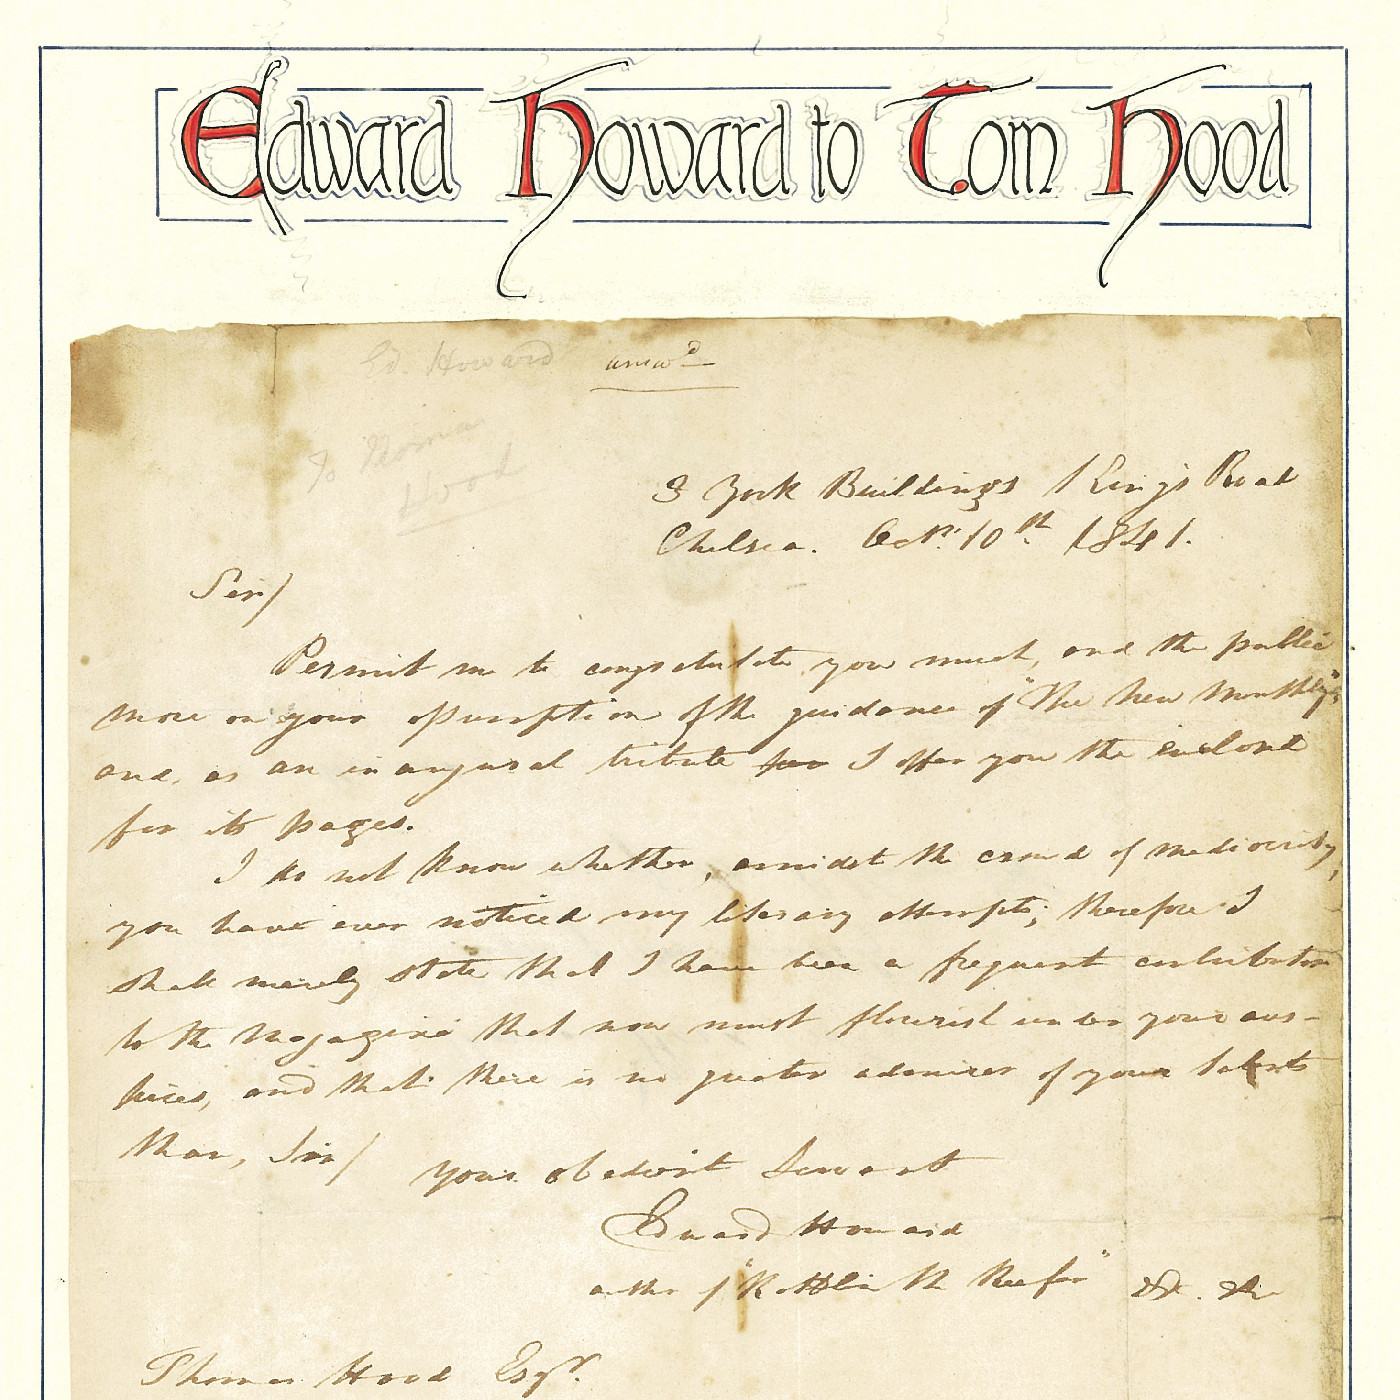 Edward Howard to Tom Hood
Ed. Howard answd
To Thomas
Hood
3 York Buildings Kings Road
Chelsea. Octr. 10th. 1841.
Sir/
Permit me to congratulate you much, and the public
more on your assumption of the guidance of "The New Monthly";
and, as an inaugural tribute for I offer you the enclosed
for its pages.
I do not know whether, amidst the crowd of mediocrity,
you have ever noticed my literary attempts; therefore I
shall merely state that I have been a frequent contributor
to the Magazine that now must flourish under your aus-
pices, and that there is no greater admirer of your talents
than, Sir/ your obedient Servant
Edward Howard
author of "Rattlin the Reefer" &c. &c
Thomas Hood Esqr.